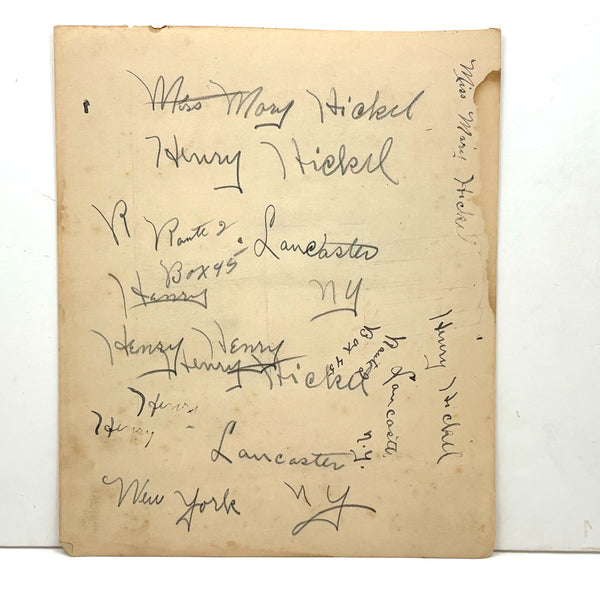 Miss Mary Hickel
Henry Hickel
R Route 2 Lancaster
Box 45
Henry NY
Henry Henry
Henry Hickel
Henry
Henry
Lancaster
New York NY
Miss Mary Hickel
Henry Hickel
Lancaster
Route 2
Box 45
N.Y.